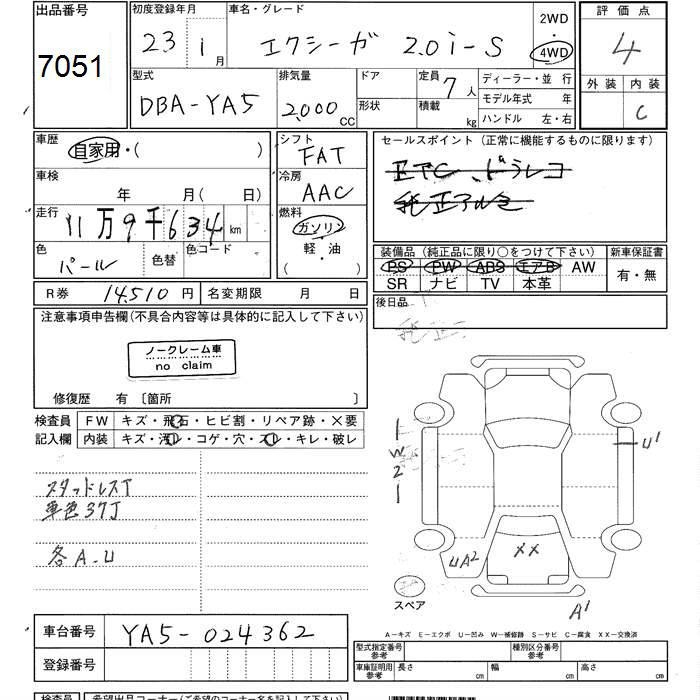 出品番号 初度登録年月 車名・グレード 2WD 評価点
7051 23 1 月 エクシーガ 2.0i-S ・ 4WD 4
型式 排気量 ドア 定員 7 人 ディーラー・並 行 外装 内装
DBA-YA5 2,000 CC 形状 積載 kg モデル年式 年 C
ハンドル 左・右
車歴 シフト セールスポイント(正常に機能するものに限ります)
自家用・( ) FAT ETC、ドラレコ
車検 冷房 純正アルミ
年 月( 日) AAC
走行 11万9千634 km 燃料
色 色替 色コード ガソリン
パール 軽・油 装備品(純正品に限り〇をつけて下さい) 新車保証書
・( ) PS PW ABS エアB AW 有・無
SR ナビ TV 本革
R券 14,510 円 名変期限 月 日 後日品
注意事項申告欄(不具合内容等は具体的に記入して下さい)
ノークレーム車
no claim
修復歴 有 〔箇所 〕
検査員 FW キズ・飛石・ヒビ割・リペア跡・×要
記入欄 内装 キズ・汚レ・コゲ・穴・スレ・キレ・破レ
U1
W2
スタッドレスT
車色37J
各A.U
UA2 XX
スペア A1
車台番号 YA5-024362
A-キズ E-エクボ U-凹み W-補修跡 S-サビ C-腐食 XX-交換済
型式指定番号 参考 種別区分番号 参考
登録番号 車庫証明用 参考 長さ cm 幅 cm 高さ cm
検査員 希望出品コーナー(ご希望のコーナー名を記入下さい)